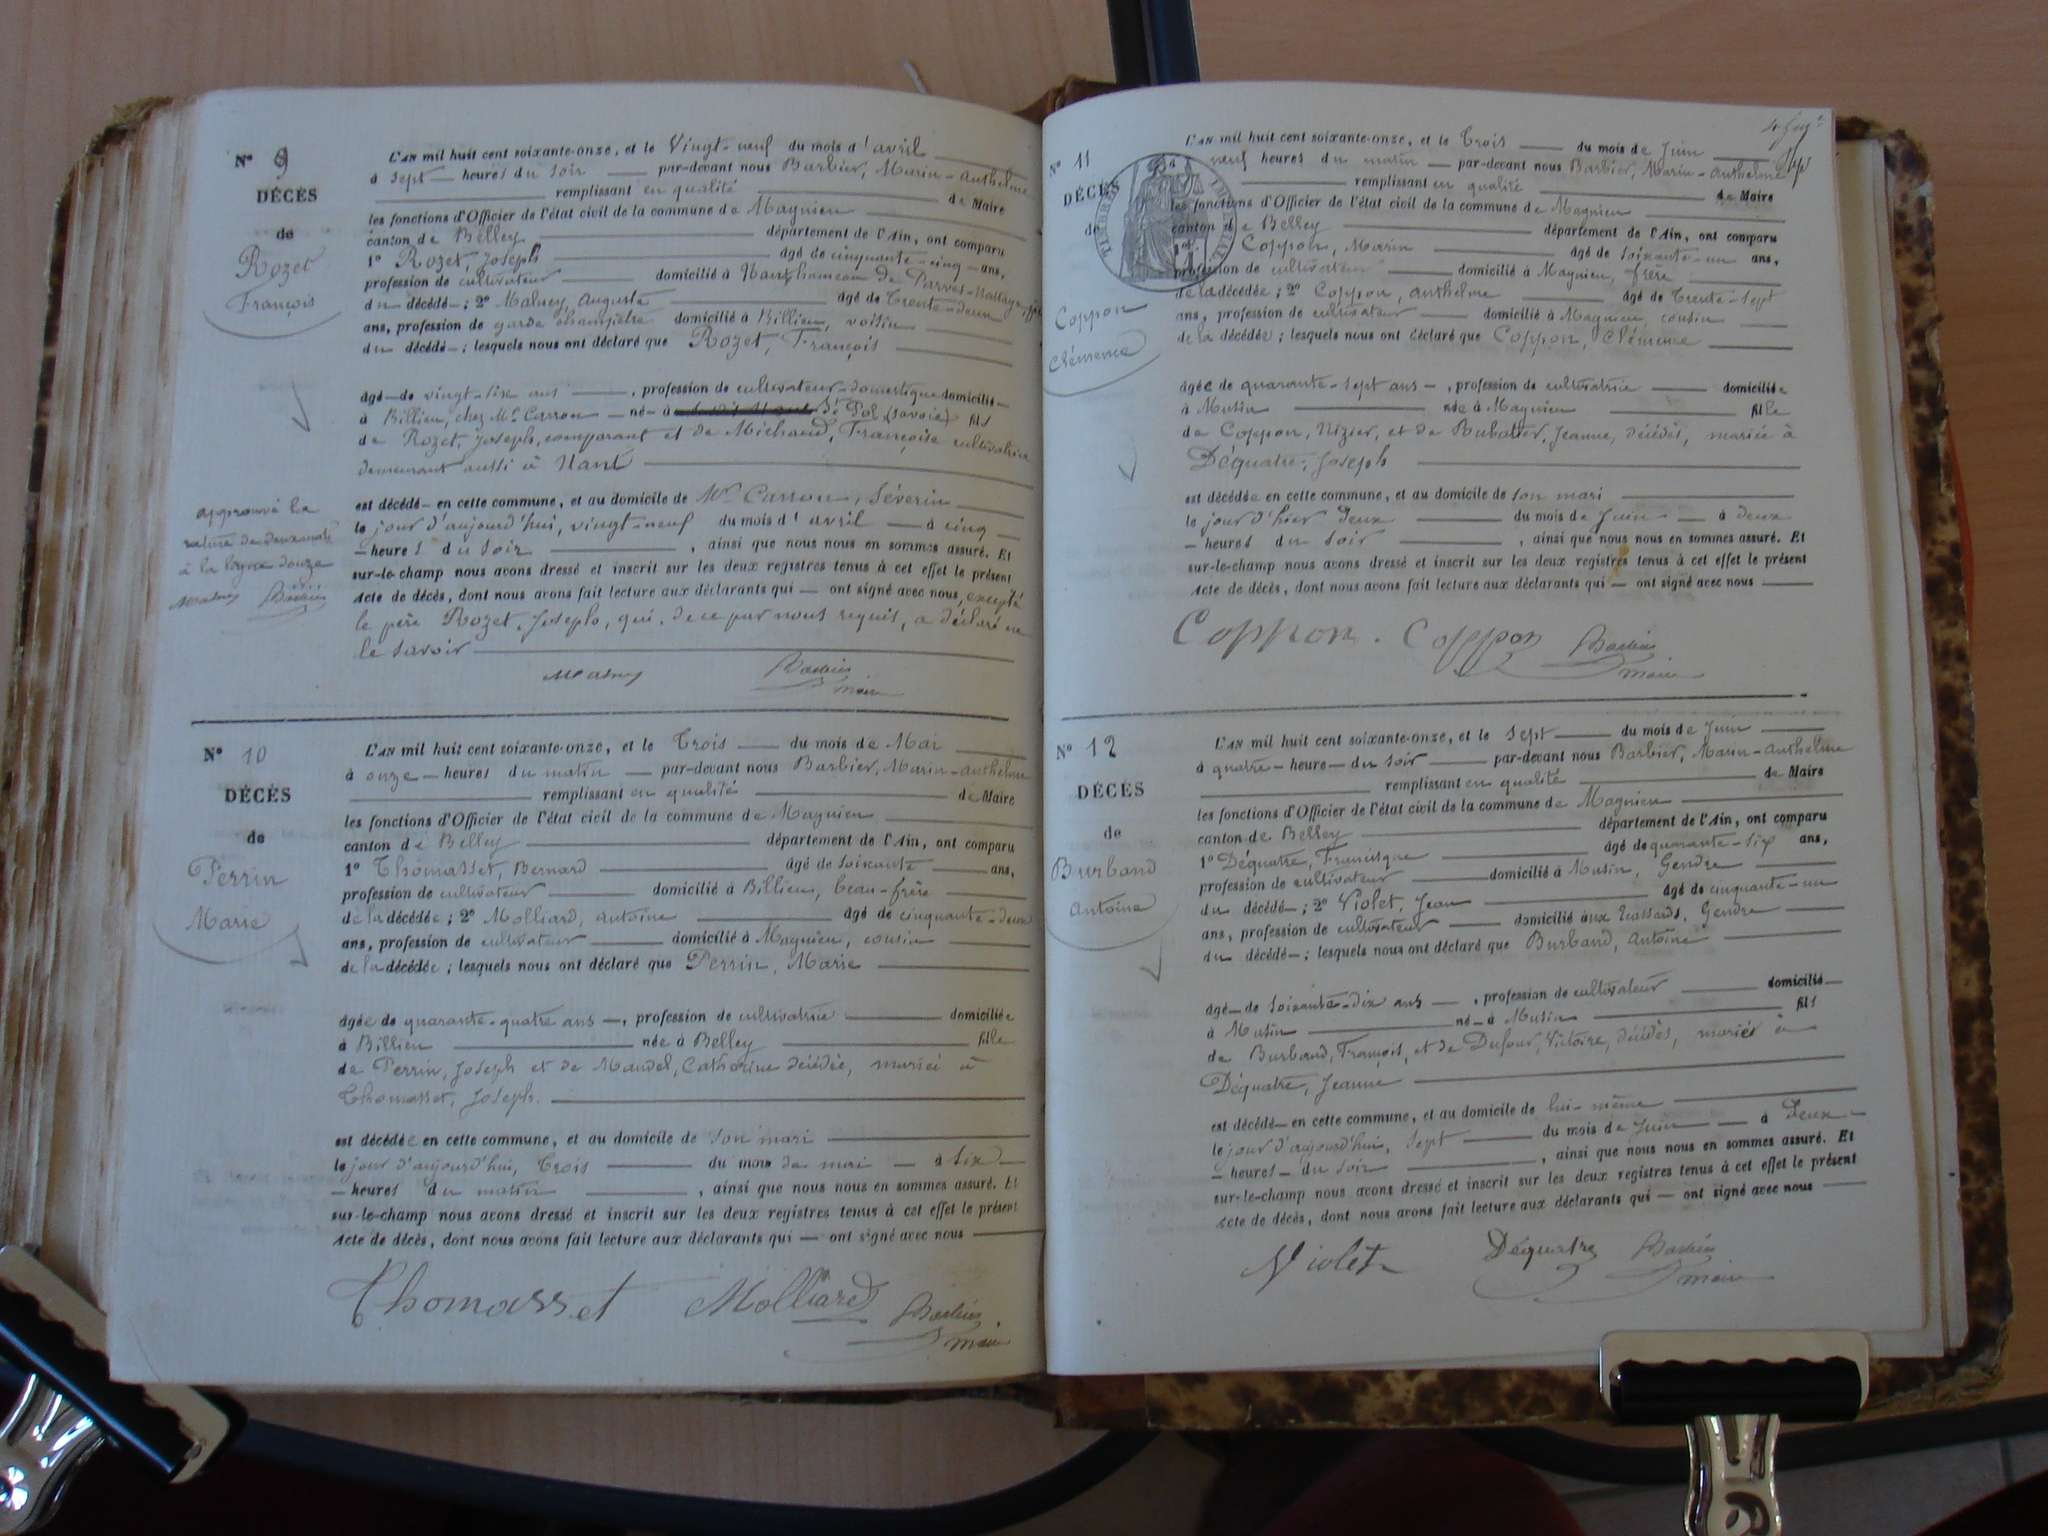 N° 9
DÉCÈS
de
Rozet
François
L'AN mil huit cent soixante-onze, et le Vingt-neuf du mois d'avril
à sept heures du soir par-devant nous Barbier, Marin-Anthelme
remplissant en qualité de Maire
les fonctions d'Officier de l'état civil de la commune de Magnieu
canton de Belley département de l'Ain, ont comparu
1° Rozet, Joseph âgé de cinquante-cinq ans,
profession de cultivateur domicilié à Nant, hameau de Parves
du décédé ; 2° Auguste âgé de Trente-deux
ans, profession de garde champêtre domicilié à Billieu, voisin
du décédé ; lesquels nous ont déclaré que Rozet, François
âgé de vingt-six ans, profession de cultivateur-domestique domicilié
à Billieu, chez Mr Carron né à (Savoie) fils
de Rozet, Joseph, comparant et de Michaud, Françoise cultivatrice
demeurant aussi à Nant
est décédé en cette commune, et au domicile de Mr Carron, Séverin
le jour d'aujourd'hui, vingt-neuf du mois d'avril à cinq
heures du soir, ainsi que nous nous en sommes assuré. Et
sur-le-champ nous avons dressé et inscrit sur les deux registres tenus à cet effet le présent
Acte de décès, dont nous avons fait lecture aux déclarants qui ont signé avec nous, excepté
le père Rozet, Joseph, qui, de ce par nous requis, a déclaré ne
le savoir
approuvé la
rature de deux mots
à la ligne douze
Barbier
Barbier
maire
N° 10
DÉCÈS
de
Perrin
Marie
L'AN mil huit cent soixante-onze, et le Trois du mois de Mai
à onze heures du matin par-devant nous Barbier, Marin-Anthelme
remplissant en qualité de Maire
les fonctions d'Officier de l'état civil de la commune de Magnieu
canton de Belley département de l'Ain, ont comparu
1° Thomasset, Bernard âgé de soixante ans,
profession de cultivateur domicilié à Billieu, beau-frère
de la décédée ; 2° Molliard, Antoine âgé de cinquante-deux
ans, profession de cultivateur domicilié à Magnieu, cousin
de la décédée ; lesquels nous ont déclaré que Perrin, Marie
âgée de quarante-quatre ans, profession de cultivatrice domiciliée
à Billieu née à Belley fille
de Perrin, Joseph et de Mandel, Catherine décédée, mariée à
Thomasset, Joseph.
est décédée en cette commune, et au domicile de son mari
le jour d'aujourd'hui, Trois du mois de mai à six
heures du matin, ainsi que nous nous en sommes assuré. Et
sur-le-champ nous avons dressé et inscrit sur les deux registres tenus à cet effet le présent
Acte de décès, dont nous avons fait lecture aux déclarants qui ont signé avec nous
Thomasset Molliard Barbier
maire
N° 11
DÉCÈS
de
Coppon
Clémence
L'AN mil huit cent soixante-onze, et le Trois du mois de Juin
neuf heures du matin par-devant nous Barbier, Marin-Anthelme
remplissant en qualité de Maire
les fonctions d'Officier de l'état civil de la commune de Magnieu
canton de Belley département de l'Ain, ont comparu
Coppon, Marin âgé de soixante-un ans,
profession de cultivateur domicilié à Magnieu, frère
de la décédée ; 2° Coppon, Anthelme âgé de Trente-sept
ans, profession de cultivateur domicilié à Magnieu, cousin
de la décédée ; lesquels nous ont déclaré que Coppon, Clémence
âgée de quarante-sept ans, profession de cultivatrice domiciliée
à Musin née à Magnieu fille
de Coppon, Nizier, et de Jeanne, décédés, mariée à
Déquatre, Joseph
est décédée en cette commune, et au domicile de son mari
le jour d'hier deux du mois de Juin à deux
heures du soir, ainsi que nous nous en sommes assuré. Et
sur-le-champ nous avons dressé et inscrit sur les deux registres tenus à cet effet le présent
Acte de décès, dont nous avons fait lecture aux déclarants qui ont signé avec nous
Coppon. Coppon Barbier
maire
N° 12
DÉCÈS
de
Burband
Antoine
L'AN mil huit cent soixante-onze, et le sept du mois de Juin
à quatre heure du soir par-devant nous Barbier, Marin-Anthelme
remplissant en qualité de Maire
les fonctions d'Officier de l'état civil de la commune de Magnieu
canton de Belley département de l'Ain, ont comparu
1° Déquatre, Francisque âgé de quarante-six ans,
profession de cultivateur domicilié à Musin, Gendre
du décédé ; 2° Violet, Jean âgé de cinquante-un
ans, profession de cultivateur domicilié aux Gendre
du décédé ; lesquels nous ont déclaré que Burband, Antoine
âgé de soixante-dix ans, profession de cultivateur domicilié
à Musin né à Musin fils
de Burband, François, et de Dufour, Victoire, décédés, marié à
Déquatre, Jeanne
est décédé en cette commune, et au domicile de lui-même
le jour d'aujourd'hui, sept du mois de Juin à Deux
heures du soir, ainsi que nous nous en sommes assuré. Et
sur-le-champ nous avons dressé et inscrit sur les deux registres tenus à cet effet le présent
Acte de décès, dont nous avons fait lecture aux déclarants qui ont signé avec nous
Violet Déquatre Barbier
maire